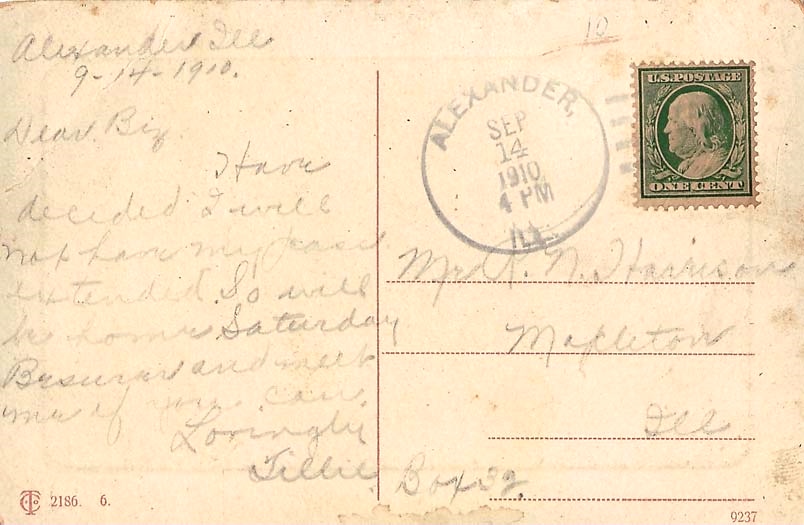 Alexander Ill
9-14-1910.
Dear Biz
Have
decided I will
not have my pass
extended. So will
be home Saturday
Be sure and meet
me if you can.
Lovingly
Tillie
10
ALEXANDER,
SEP
14
1910
4 PM
ILL.
U.S. POSTAGE
ONE CENT
N. Harrison
Mapleton
Ill
Box
2186. 6.
9237